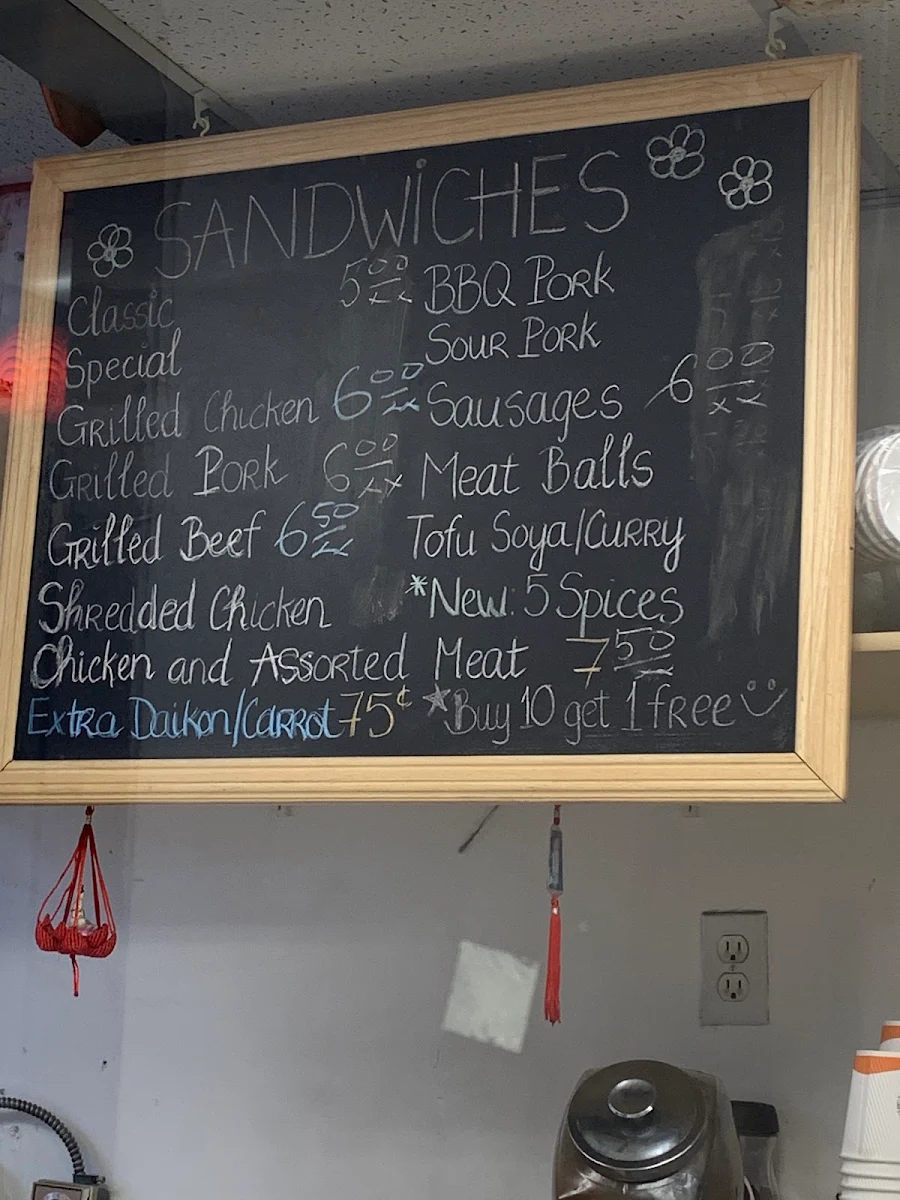 SANDWiCHES
Classic 5.00
Special
Grilled Chicken 6.00
Grilled Pork 6.00
Grilled Beef 6.50
Shredded Chicken
BBQ Pork
Sour Pork
Sausages 6.00
Meat Balls
Tofu Soya/Curry
*New: 5 Spices
Chicken and Assorted Meat 7.50
Extra Daikon/Carrot 75¢
*Buy 10 get 1 free